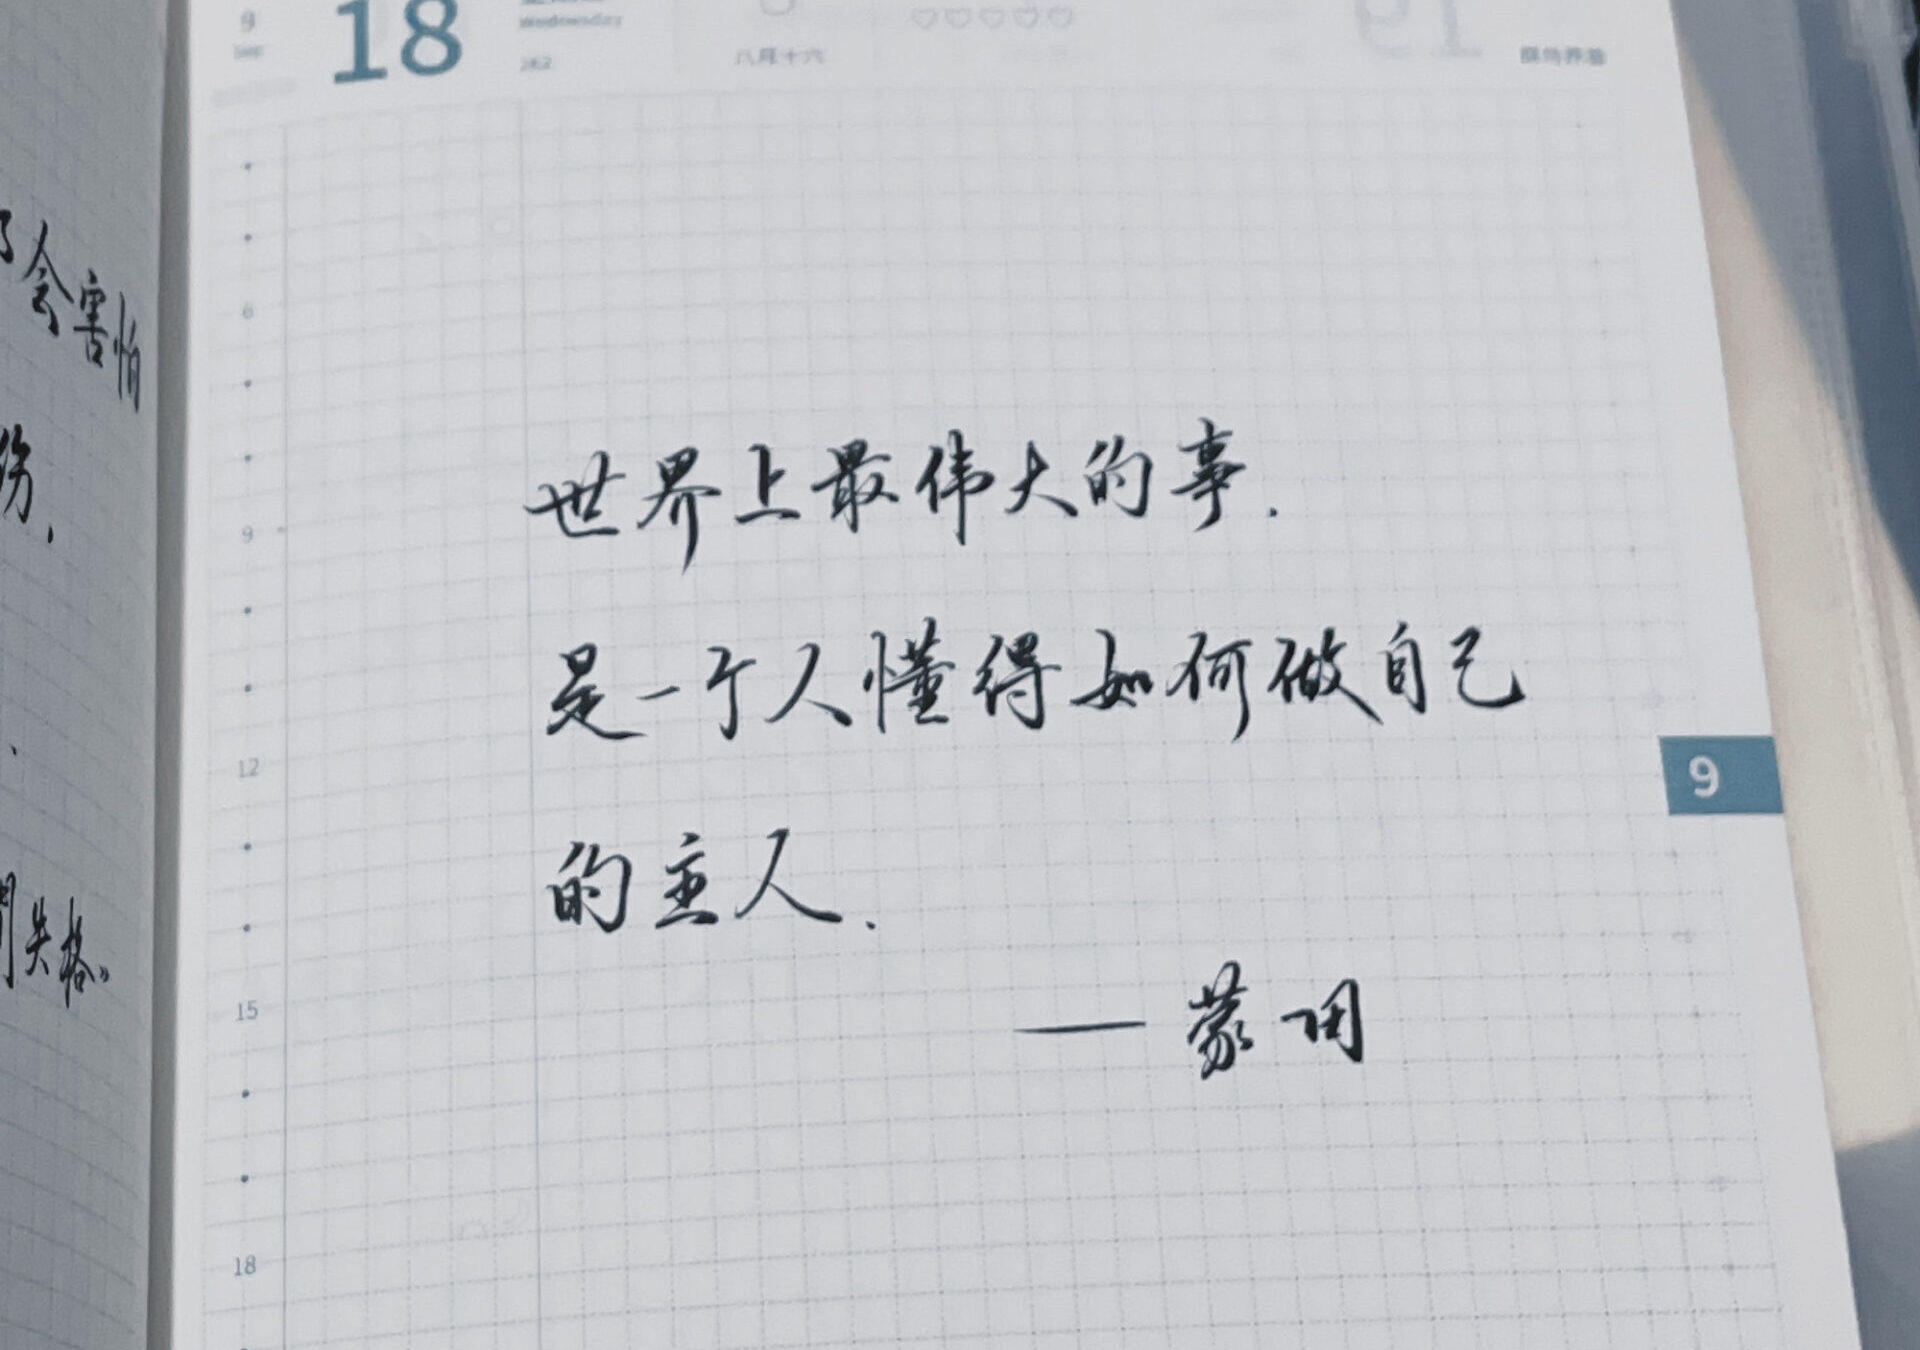 9
18
Wednesday
262
八月十六
会害怕
伤.
失格》
世界上最伟大的事.
是一个人懂得如何做自己
的主人.
——蒙田
6
9
12
15
18
9